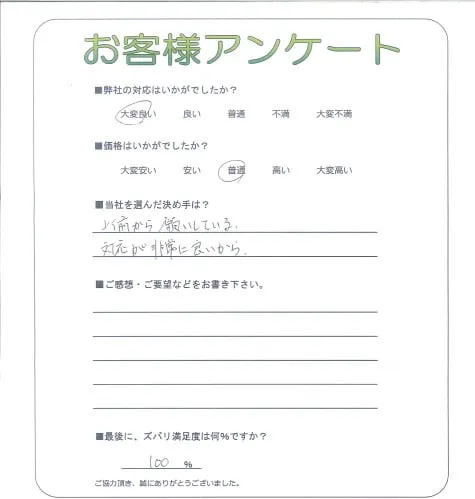 お客様アンケート
■弊社の対応はいかがでしたか?
大変良い 良い 普通 不満 大変不満
■価格はいかがでしたか?
大変安い 安い 普通 高い 大変高い
■当社を選んだ決め手は?
以前から願いしている.
対応が非常に良いから.
■ご感想・ご要望などをお書き下さい。
■最後に、ズバリ満足度は何%ですか?
100 %
ご協力頂き、誠にありがとうございました。